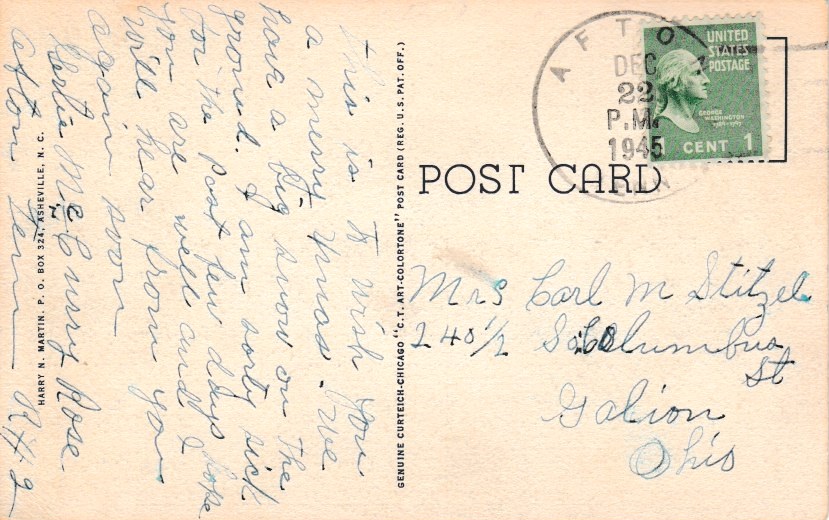 This is to wish you
a merry Xmas. We
have a big snow on the
ground. I am sorty sick
for the past few days hope
you are well and I
will hear from you
again soon
Mc Curry Rose.
Afton Tenn R#2
HARRY N. MARTIN, P. O. BOX 324, ASHEVILLE, N. C.
GENUINE CURTEICH-CHICAGO "C.T. ART-COLORTONE" POST CARD (REG. U.S. PAT. OFF.)
POST CARD
AFTO
DEC
22
P.M.
1945
TENN
UNITED
STATES
POSTAGE
GEORGE
WASHINGTON
1 CENT 1
Mrs Carl M Stitzel
240 1/2 So Columbus
St
Galion
Ohio